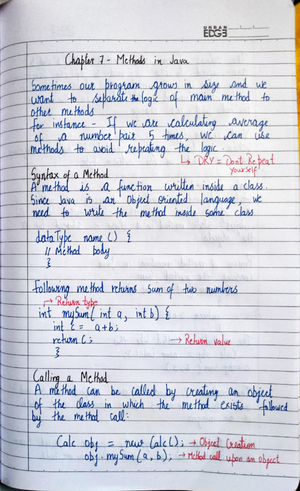 URBAN
EDGE
Chapter 7 - Methods in Java
Sometimes our program grows in size and we
want to separate the logic of main method to
other methods
for instance - If we are calculating average
of a number pair 5 times, we can use
methods to avoid repeating the logic.
↳ DRY = Dont Repeat
yourself
Syntax of a Method
A method is a function written inside a class.
Since Java is an Object oriented language, we
need to write the method inside some class
dataType name () {
// Method body
}
Following method returns sum of two numbers
→ Return type
int mySum( int a, int b) {
int c = a+b;
return c; → Return value
}
Calling a Method
A method can be called by creating an object
of the class in which the method exists followed
by the method call:
Calc obj = new Calc(); → Object Creation
obj.mySum(a, b); → Method call upon an object